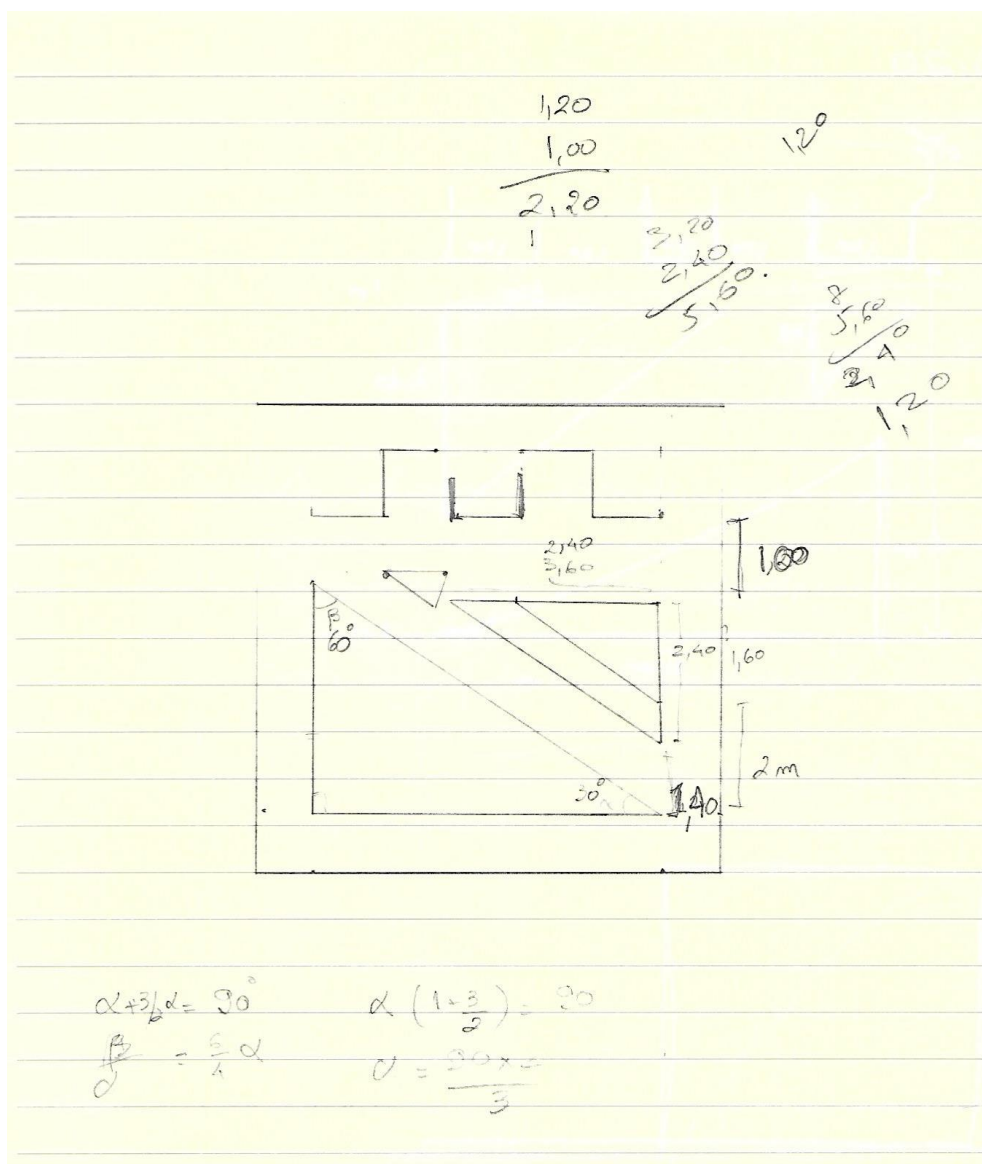 1,20
1,00
2,20
1
1,20
3,20
2,40
5,60.
5,60
1,20
2,40
3,60
1,00
60°
2,40
1,60
2m
30°
1,40
α+3/2α= 90°
α(1+3/2)= 90
= 5/4 α
3